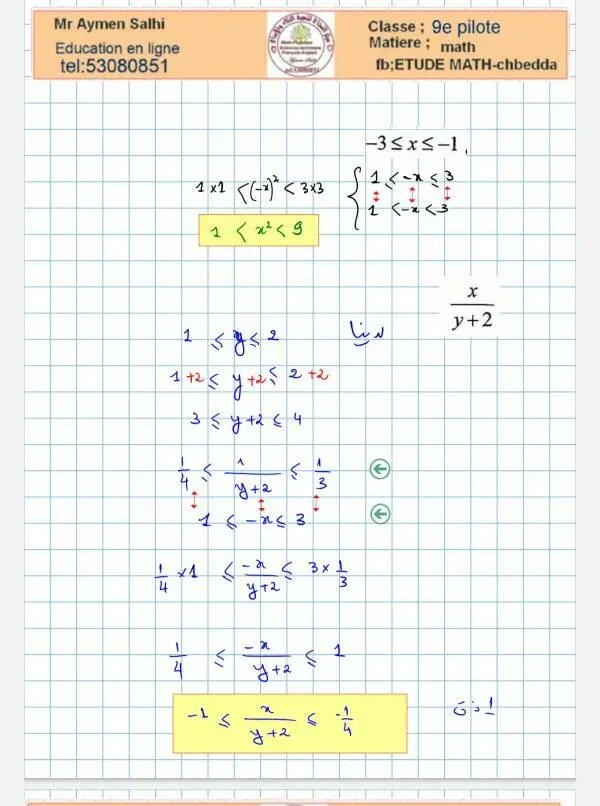 Mr Aymen Salhi
Education en ligne
tel:53080851
Classe ; 9e pilote
Matiere ; math
fb;ETUDE MATH-chbedda
−3 ≤ x ≤ −1 ,
1 ≤ −x ≤ 3
1 < −x < 3
1×1 < (−x)² < 3×3
1 < x² < 9
x/(y+2)
لدينا
1 ≤ y ≤ 2
1 +2 ≤ y +2 ≤ 2 +2
3 ≤ y+2 ≤ 4
1/4 ≤ 1/(y+2) ≤ 1/3
1 ≤ −x ≤ 3
1/4 ×1 ≤ −x/(y+2) ≤ 3 × 1/3
1/4 ≤ −x/(y+2) ≤ 1
−1 ≤ x/(y+2) ≤ −1/4